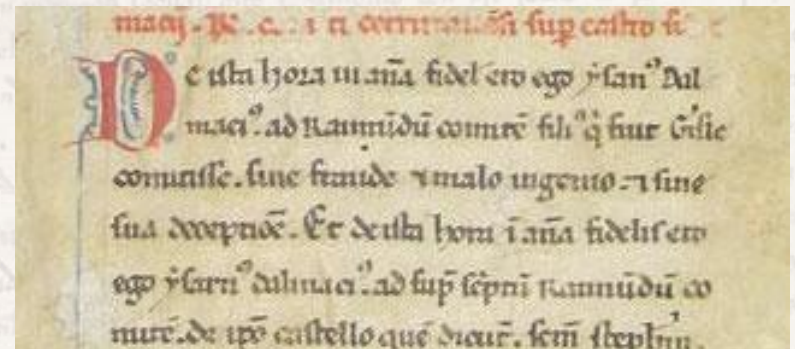 macij. R. c. i sup castro
De ista hora in anã fidel ero ego ysarn⁹ Dal
maci⁹. ad Raimũdũ comitẽ fili⁹ q̇ fuit Gisle
comitisse. sine fraude ⁊ malo ingenio. ⁊ sine
sua deceptiõe. Et de ista hora ĩ anã fidelis ero
ego ysarn⁹ dalmaci⁹. ad sup̃ sc̃ptũ raimũdũ co
mitẽ. de ip̃o castello quẽ dicũt. sc̃m stephũ.